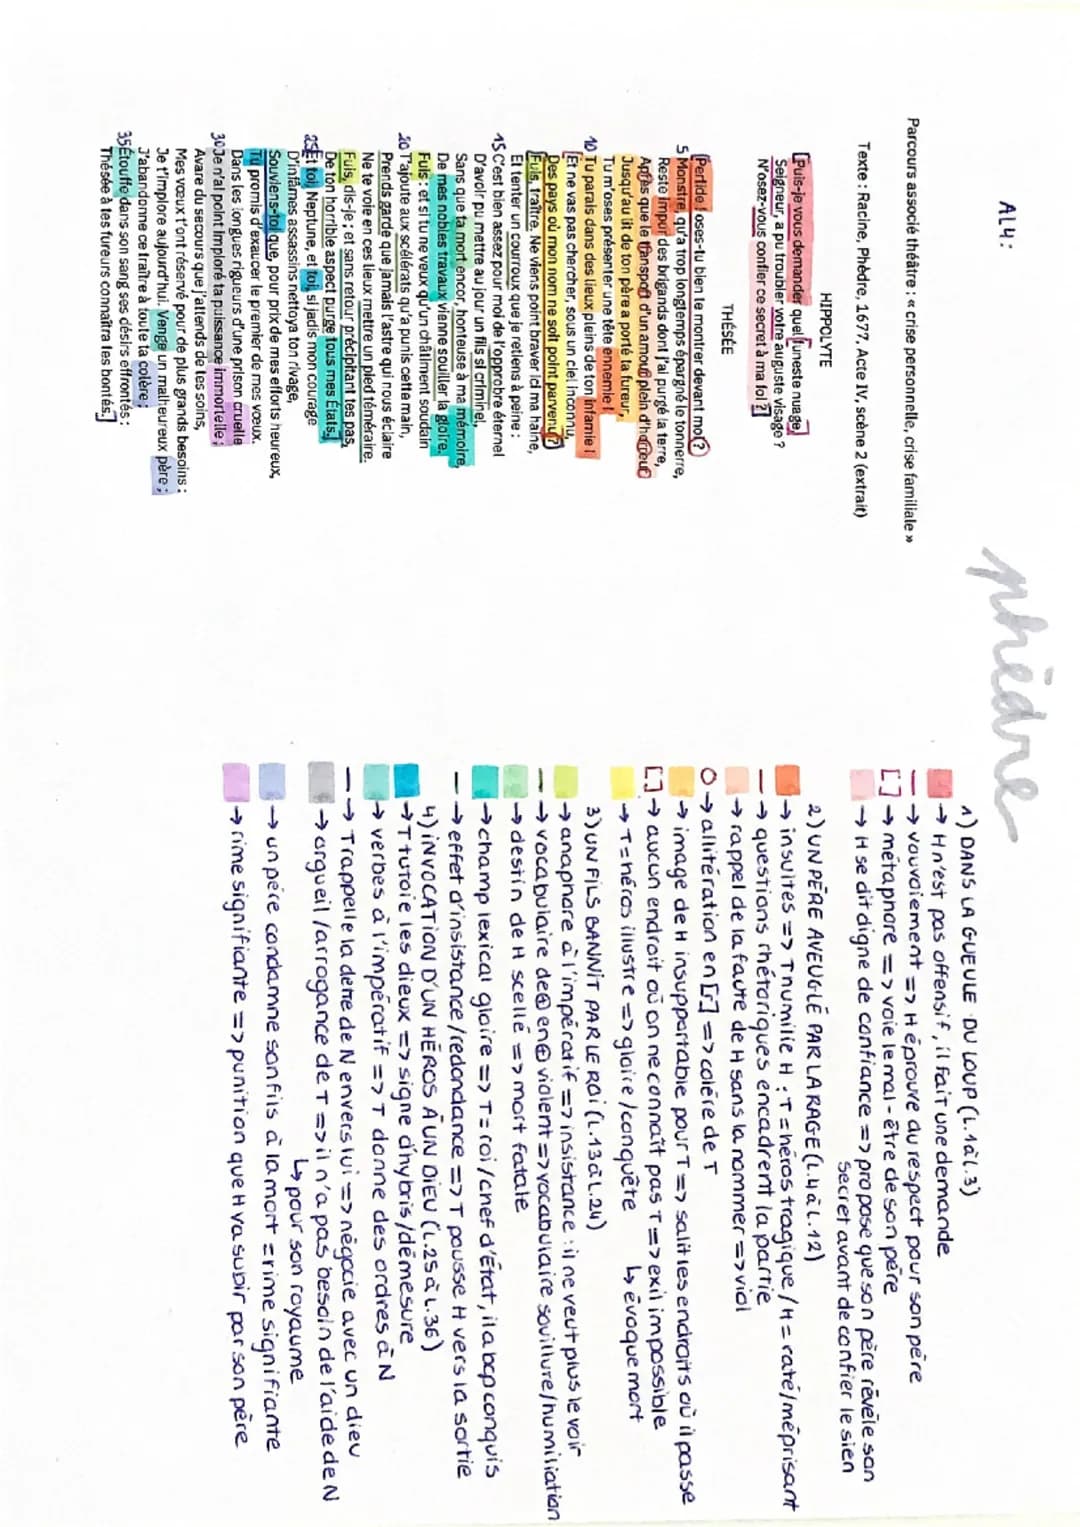 AL4:
phèdre
Parcours associé théâtre : « crise personnelle, crise familiale »
Texte : Racine, Phèdre, 1677, Acte IV, scène 2 (extrait)
HIPPOLYTE
[Puis-je vous demander quel [funeste nuage]
Seigneur, a pu troubler votre auguste visage ?
N'osez-vous confier ce secret à ma foi ?]
THÉSÉE
[Perfide ! oses-tu bien te montrer devant moi ?
5 Monstre, qu'a trop longtemps épargné le tonnerre,
Reste impur des brigands dont j'ai purgé la terre,
Après que le transport d'un amour plein d'horreur
Jusqu'au lit de ton père a porté ta fureur,
Tu m'oses présenter une tête ennemie !
10 Tu parais dans des lieux pleins de ton infamie !
[Et ne vas pas chercher, sous un ciel inconnu,
Des pays où mon nom ne soit point parvenu ?]
[Fuis, traître. Ne viens point braver ici ma haine,
Et tenter un courroux que je retiens à peine :
15 C'est bien assez pour moi de l'opprobre éternel
D'avoir pu mettre au jour un fils si criminel,
Sans que ta mort encor, honteuse à ma mémoire,
De mes nobles travaux vienne souiller la gloire.
Fuis : et si tu ne veux qu'un châtiment soudain
20 T'ajoute aux scélérats qu'a punis cette main,
Prends garde que jamais l'astre qui nous éclaire
Ne te voie en ces lieux mettre un pied téméraire.
Fuis, dis-je ; et sans retour précipitant tes pas,
De ton horrible aspect purge tous mes États.]
25 Et toi, Neptune, et toi, si jadis mon courage
D'infâmes assassins nettoya ton rivage,
Souviens-toi que, pour prix de mes efforts heureux,
Tu promis d'exaucer le premier de mes vœux.
Dans les longues rigueurs d'une prison cruelle
30 Je n'ai point imploré ta puissance immortelle ;
Avare du secours que j'attends de tes soins,
Mes vœux t'ont réservé pour de plus grands besoins :
Je t'implore aujourd'hui. Venge un malheureux père ;
J'abandonne ce traître à toute ta colère ;
35 Étouffe dans son sang ses désirs effrontés :
Thésée à tes fureurs connaîtra tes bontés.]
1) DANS LA GUEULE DU LOUP (L.1 à L.3)
→ H n'est pas offensif, il fait une demande
→ vouvoiement => H éprouve du respect pour son père
[ ] → métaphore => voie le mal-être de son père
→ H se dit digne de confiance => propose que son père révèle son
secret avant de confier le sien
2) UN PÈRE AVEUGLÉ PAR LA RAGE (L.4 à L.12)
→ insultes => T humilie H ; T = héros tragique / H = raté/méprisant
→ questions rhétoriques encadrent la partie
→ rappel de la faute de H sans la nommer => viol
O → allitération en [r] => colère de T
→ image de H insupportable pour T => salit les endroits où il passe
[ ] → aucun endroit où on ne connaît pas T => exil impossible
→ T = héros illustre => gloire/conquête ↳ évoque mort
3) UN FILS BANNIT PAR LE ROI (L.13 à L.24)
→ anaphore à l'impératif => insistance : il ne veut plus le voir
→ vocabulaire de ⊕ en ⊕ violent => vocabulaire souillure/humiliation
→ destin de H scellé => mort fatale
→ champ lexical gloire => T = roi/chef d'État, il a bcp conquis
→ effet d'insistance/redondance => T pousse H vers la sortie
4) INVOCATION D'UN HÉROS À UN DIEU (L.25 à L.36)
→ T tutoie les dieux => signe d'hybris/démesure
→ verbes à l'impératif => T donne des ordres à N
→ T rappelle la dette de N envers lui => négocie avec un dieu
→ orgueil/arrogance de T => il n'a pas besoin de l'aide de N
↳ pour son royaume
→ un père condamne son fils à la mort = rime signifiante
→ rime signifiante => punition que H va subir par son père